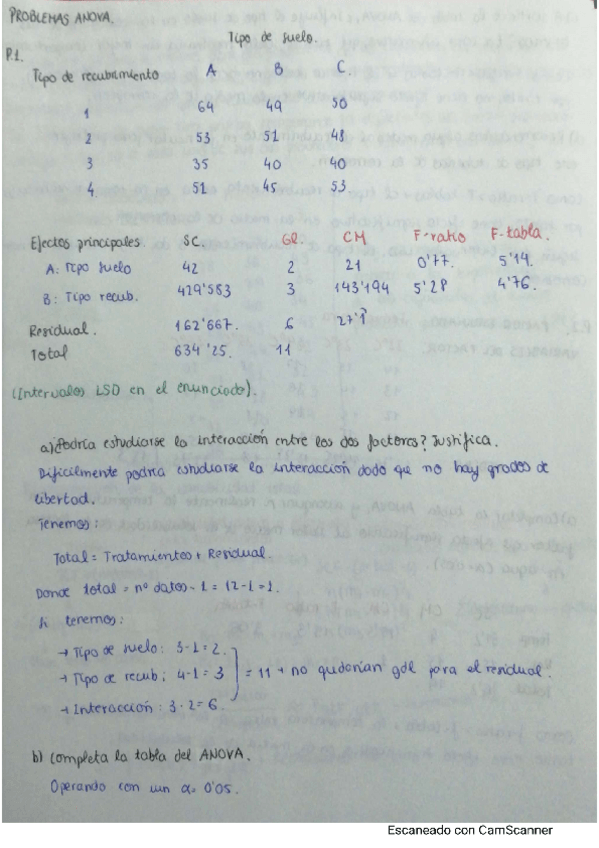 PROBLEMAS ANOVA.
Tipo de suelo.
P.1.
Tipo de recubrimiento A B C
1 64 49 50
2 53 51 48
3 35 40 40
4. 51 45 53
Efectos principales SC GL CM F-ratio F-tabla.
A: Tipo suelo 42 2 21 0'77. 5'14.
B: Tipo recub. 429'583 3 143'194 5'28 4'76.
Residual. 162'667. 6 27'1
Total 634'25. 11
(Intervalos LSD en el enunciado).
a) ¿Podría estudiarse la interacción entre los dos factores? Justifica.
Dificilmente podría estudiarse la interacción dado que no hay grados de
libertad.
Tenemos:
Total = Tratamientos + Residual.
Donde total = nº datos - 1 = 12-1=1.
Si tenemos:
→ Tipo de suelo: 3-1=2.
→ Tipo de recub: 4-1=3 = 11 → no quedarían gdl para el residual.
→ Interacción: 3·2=6.
b) Completa la tabla del ANOVA.
Operando con un α=0'05.
Escaneado con CamScanner